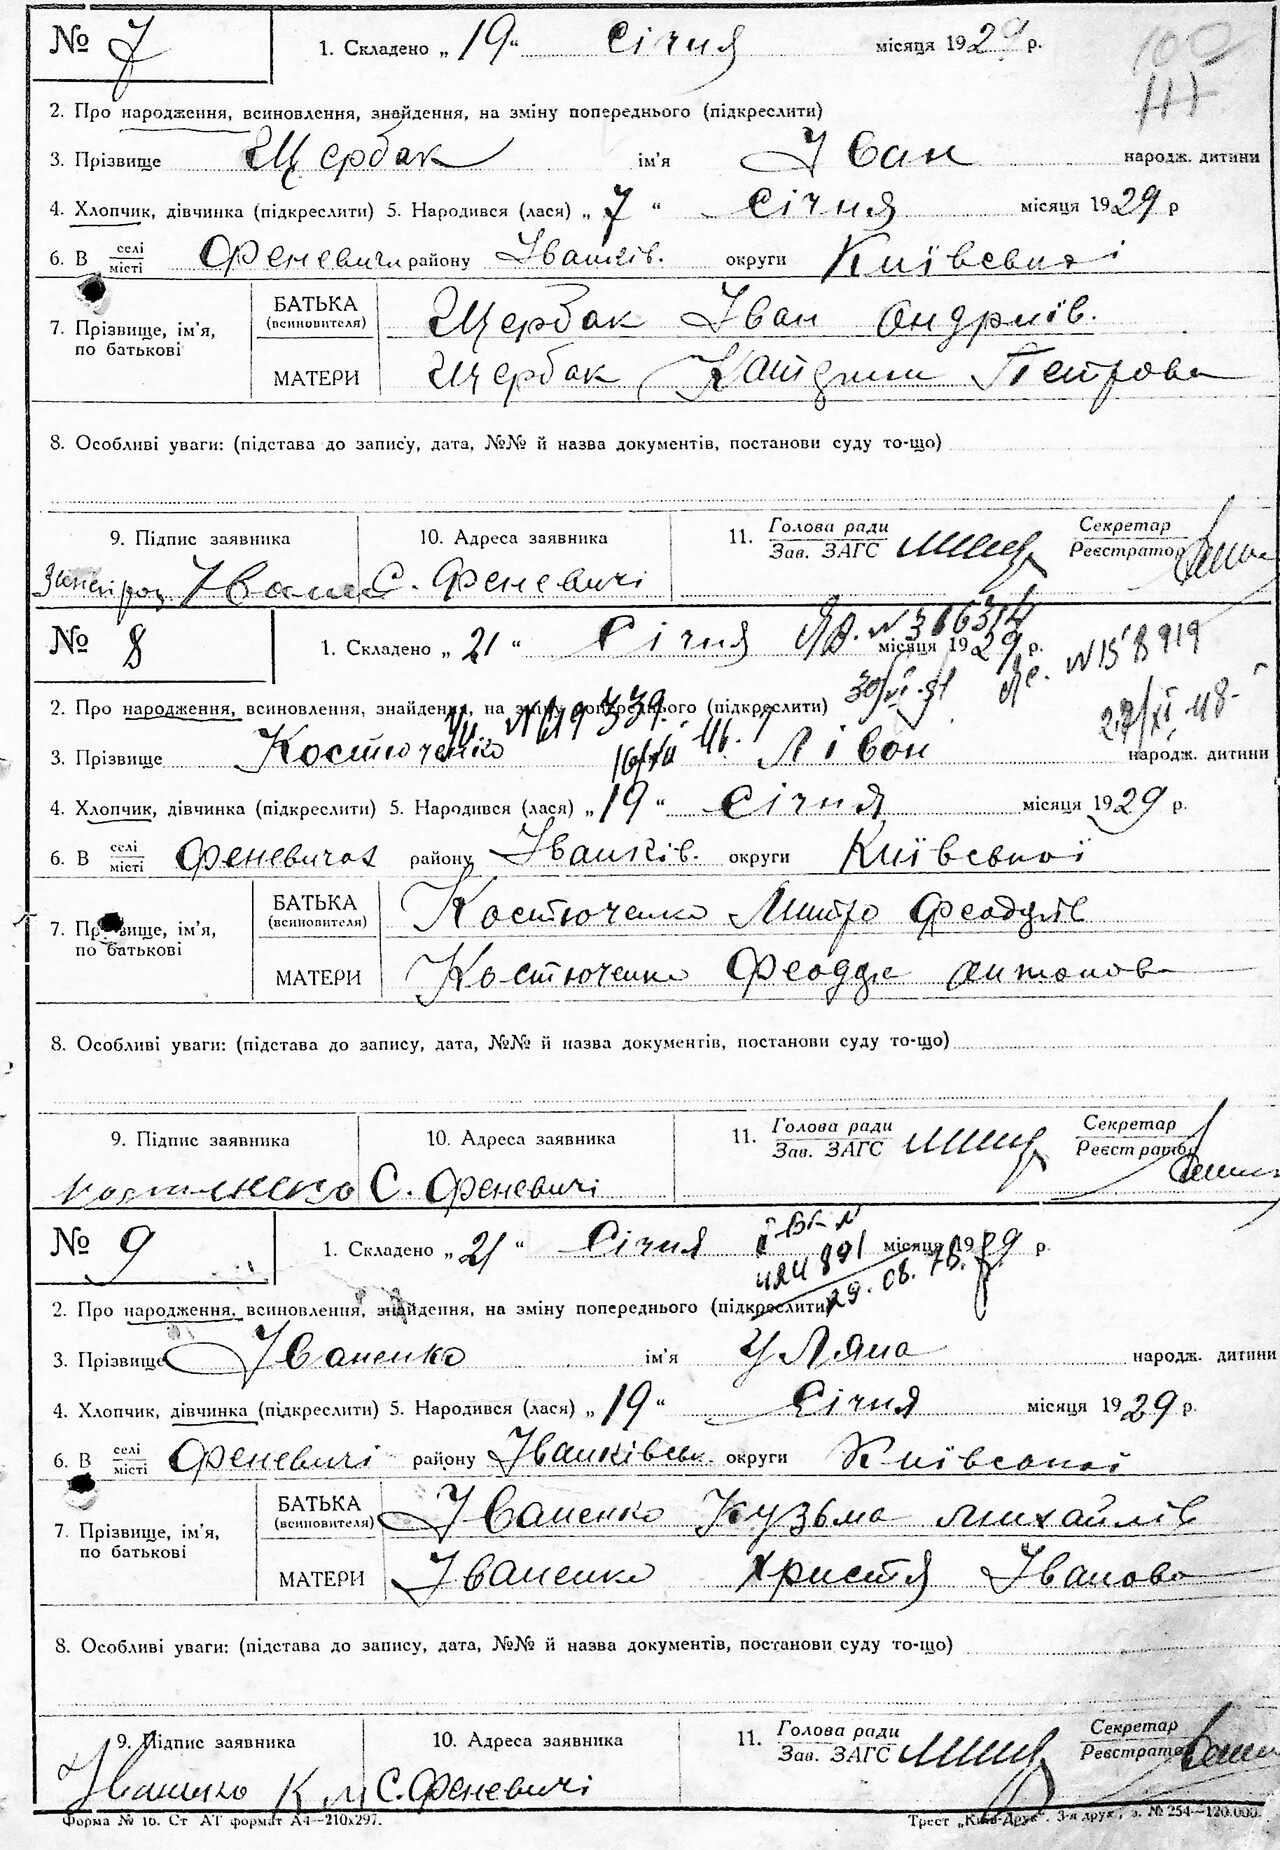 № 7 1. Складено „ 19 “ Січня місяця 1929 р.
100
2. Про народження, всиновлення, знайдення, на зміну попереднього (підкреслити)
3. Прізвище Щербак ім'я Іван народж. дитини
4. Хлопчик, дівчинка (підкреслити) 5. Народився (лася) „ 7 “ Січня місяця 1929 р
6. В селі/місті Феневичи району Іванків. округи Київської
7. Прізвище, ім'я, по батькові
БАТЬКА (всиновителя) Щербак Іван Андриїв.
МАТЕРИ Щербак Петрова
8. Особливі уваги: (підстава до запису, дата, №№ й назва документів, постанови суду то-що)
9. Підпис заявника 10. Адреса заявника 11. Голова ради/Зав. ЗАГС Секретар/Реєстратор
Іван С. Феневичі
№ 8 1. Складено „ 21 “ Січня місяця 1929 р.
№ 158919
2. Про народження, всиновлення, знайдення, на зміну попереднього (підкреслити)
N 619339.
27/XI 48
3. Прізвище Костюченко Лівон народж. дитини
4. Хлопчик, дівчинка (підкреслити) 5. Народився (лася) „ 19 “ Січня місяця 1929 р.
6. В селі/місті Феневичах району Іванків. округи Київської
7. Прізвище, ім'я, по батькові
БАТЬКА (всиновителя) Костюченко Митро
МАТЕРИ Костюченко Антонова
8. Особливі уваги: (підстава до запису, дата, №№ й назва документів, постанови суду то-що)
9. Підпис заявника 10. Адреса заявника 11. Голова ради/Зав. ЗАГС Секретар/Реєстратор
С. Феневичі
№ 9 1. Складено „ 21 “ Січня місяця 1929 р.
424891
29.08.78.
2. Про народження, всиновлення, знайдення, на зміну попереднього (підкреслити)
3. Прізвище Іваненко ім'я Уляна народж. дитини
4. Хлопчик, дівчинка (підкреслити) 5. Народився (лася) „ 19 “ Січня місяця 1929 р.
6. В селі/місті Феневичі району Іванківськ. округи Київської
7. Прізвище, ім'я, по батькові
БАТЬКА (всиновителя) Іваненко Кузьма Михайлів
МАТЕРИ Іваненко Христя Іванова
8. Особливі уваги: (підстава до запису, дата, №№ й назва документів, постанови суду то-що)
9. Підпис заявника 10. Адреса заявника 11. Голова ради/Зав. ЗАГС Секретар/Реєстратор
К М С. Феневичі
Форма № 16. Ст АТ формат А4—210х297. Трест „Київ-Друк“. 3-я друк., з. № 254—120.000.